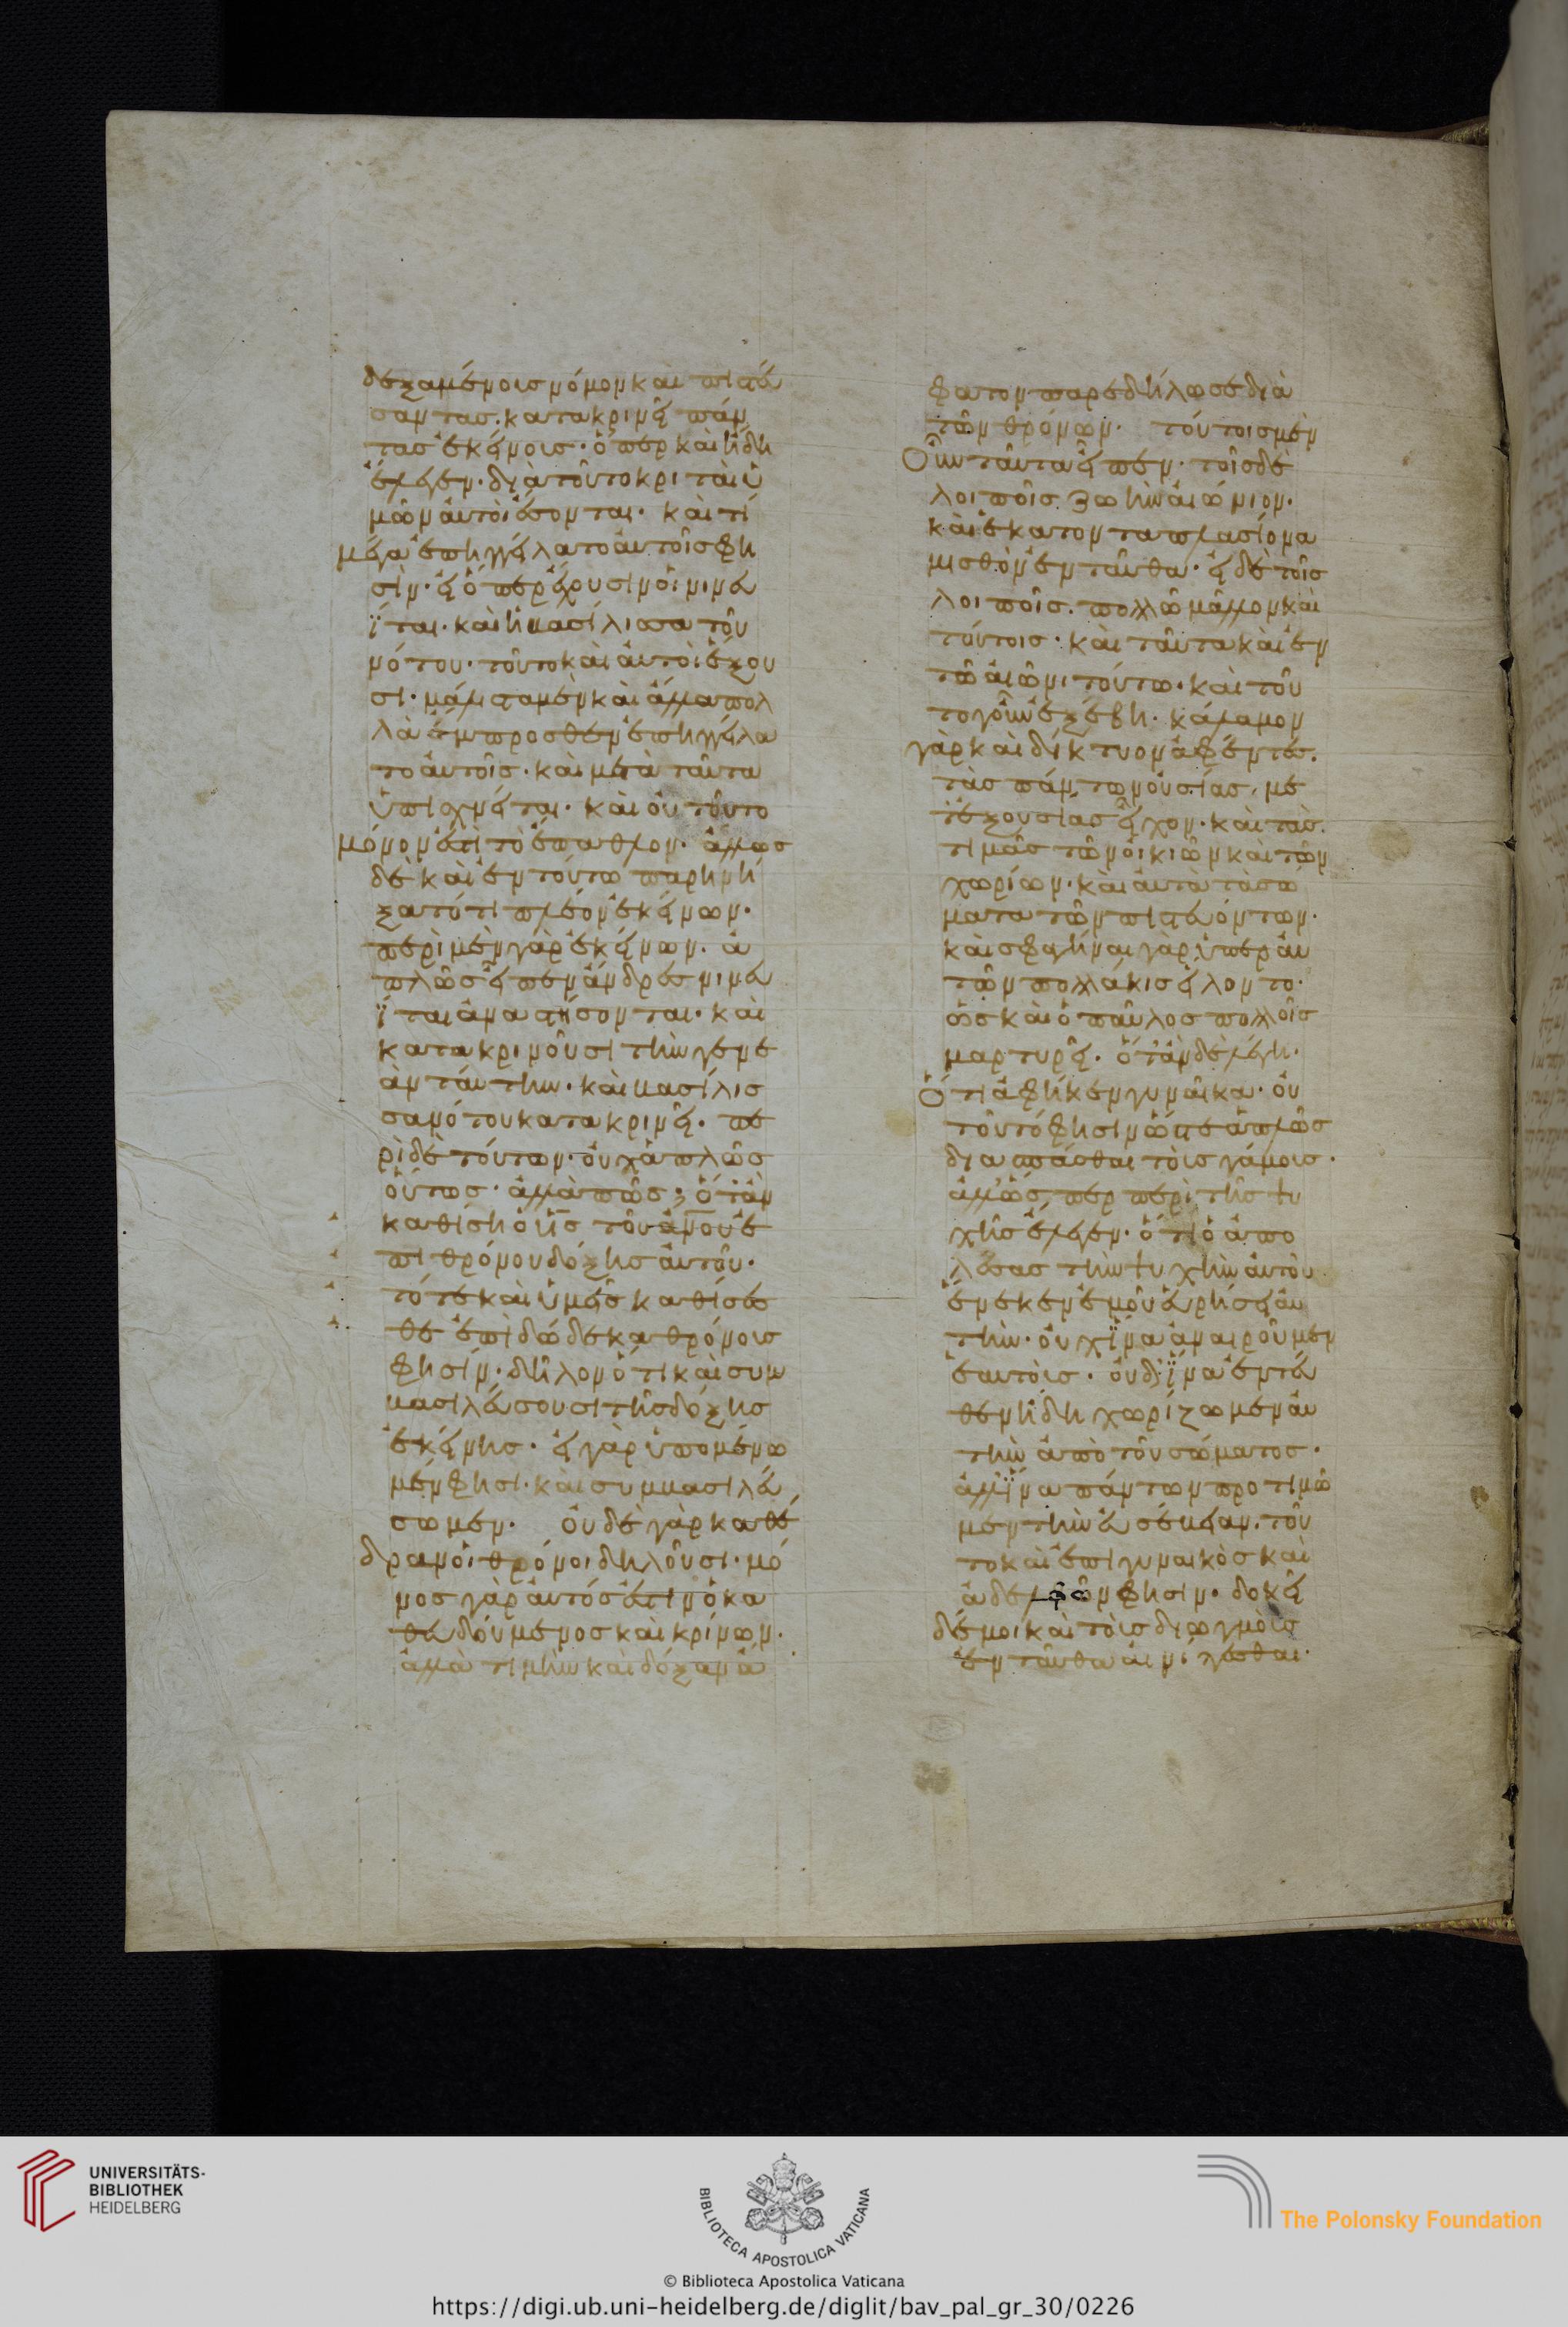 δεξαμένοις νόμον καὶ πιστεύ
σαντας. κατακρινεῖ πάν
τας ἐκείνοις· ὅπερ καὶ ἤδη
ἔλεγεν· διὰ τοῦτο κριταὶ ὑ
μῶν αὐτοὶ ἔσονται· καὶ τί
μέγα ἐπηγγείλατο αὐτοῖς φη
σίν· εἰ ὅπερ ἔχουσιν οἱ νινευ
ΐται. καὶ ἡ βασίλισσα τοῦ
νότου· τοῦτο καὶ αὐτοὶ ἕξου
σι· μάλιστα μὲν καὶ ἄλλα πολ
λὰ ἔμπροσθεν ἐπηγγείλα
το αὐτοῖς· καὶ μετὰ ταῦτα
ὑπισχνεῖται· καὶ οὐ τοῦτο
μόνον ἐστὶ τὸ ἔπαθλον· ἄλλως
δὲ καὶ ἐν τούτω παρηνί
ξατό τι πλέον ἐκείνων·
περὶ μὲν γὰρ ἐκείνων· ἁ
πλῶς εἶπεν ἄνδρες νινευ
ΐται ἀναστήσονται· καὶ
κατακρινοῦσι τὴν γενε
ὰν ταύτην· καὶ βασίλισ
σα νότου κατακρινεῖ· πε
ρὶ δὲ τούτων· οὐχ ἁπλῶς
οὕτως· ἀλλὰ πῶς; ὅταν
καθίση ὁ υς τοῦ ανου ἐ
πὶ θρόνου δόξης αὐτοῦ·
τότε καὶ ὑμεῖς καθίσεσ
θε ἐπὶ δώδεκα θρόνοις
φησίν· δῆλον ὅτι καὶ συμ
βασιλεύσουσι τῆς δόξης
ἐκείνης· εἰ γὰρ ὑπομένω
μέν φησι· καὶ συμβασιλεύ
σωμεν· οὐδὲ γὰρ καθέ
δραν οἱ θρόνοι δηλοῦσι· μό
νος γὰρ αὐτός ἐστιν ὁ κα
θεδούμενος καὶ κρίνων·
ἀλλὰ τιμὴν καὶ δόξαν ἄ
φατον παρεδήλωσε διὰ
τῶν θρόνων· τούτοις μὲν
οὖν ταῦτα εἶπεν· τοῖς δὲ
λοιποῖς ζωὴν αἰώνιον·
καὶ ἑκατονταπλασίονα
μισθὸν ἐνταῦθα· εἰ δὲ τοῖς
λοιποῖς· πολλῶ μᾶλλον καὶ
τούτοις· καὶ ταῦτα καὶ ἐν
τῶ αἰῶνι τούτω· καὶ τοῦ
το γοῦν ἐξέβη· κάλαμον
γὰρ καὶ δίκτυον ἀφέντες.
τὰς πάντων οὐσίας. με
τ' ἐξουσίας εἶχον· καὶ τὰς
τιμὰς τῶν οἰκιῶν καὶ τῶν
χωρίων· καὶ αὐτὰ τὰ σώ
ματα τῶν πιστευόντων·
καὶ σφαγῆναι γὰρ ὑπὲρ αὐ
τῶν πολλάκις εἵλοντο·
ὡς καὶ ὁ παῦλος πολλοῖς
μαρτυρεῖ· ὅταν δὲ λέγη·
ὅτι ἀφῆκεν γυναῖκα· οὐ
τοῦτό φησιν ὥστε ἁπλῶς
διασπᾶσθαι τοὶς γάμοις·
ἀλλ' ὥσπερ περὶ τῆς ψυ
χῆς ἔλεγεν· ὅτι ὁ ἀπο
λέσας τὴν ψυχὴν αὐτοῦ
ἕνεκεν ἐμοῦ εὑρήσει αὐ
τήν· οὐχ ἵνα ἀναιροῦμεν
ἑαυτοὶς· οὐδ' ἵνα ἐντεῦ
θεν ἤδη χωρίζωμεν αὐ
τὴν ἀπὸ τοῦ σώματος·
ἀλλ' ἵνα πάντων προτιμῶ
μεν τὴν εὐσέβειαν· τοῦ
το καὶ ἐπὶ γυναικὸς καὶ
ἀδελφῶν φησιν· δοκεῖ
δέ μοι καὶ τοὶς διωγμοὶς
ἐνταῦθα αἰνίγεσθαι·
UNIVERSITÄTS-
BIBLIOTHEK
HEIDELBERG
BIBLIOTECA APOSTOLICA VATICANA
The Polonsky Foundation
© Biblioteca Apostolica Vaticana
https://digi.ub.uni-heidelberg.de/diglit/bav_pal_gr_30/0226